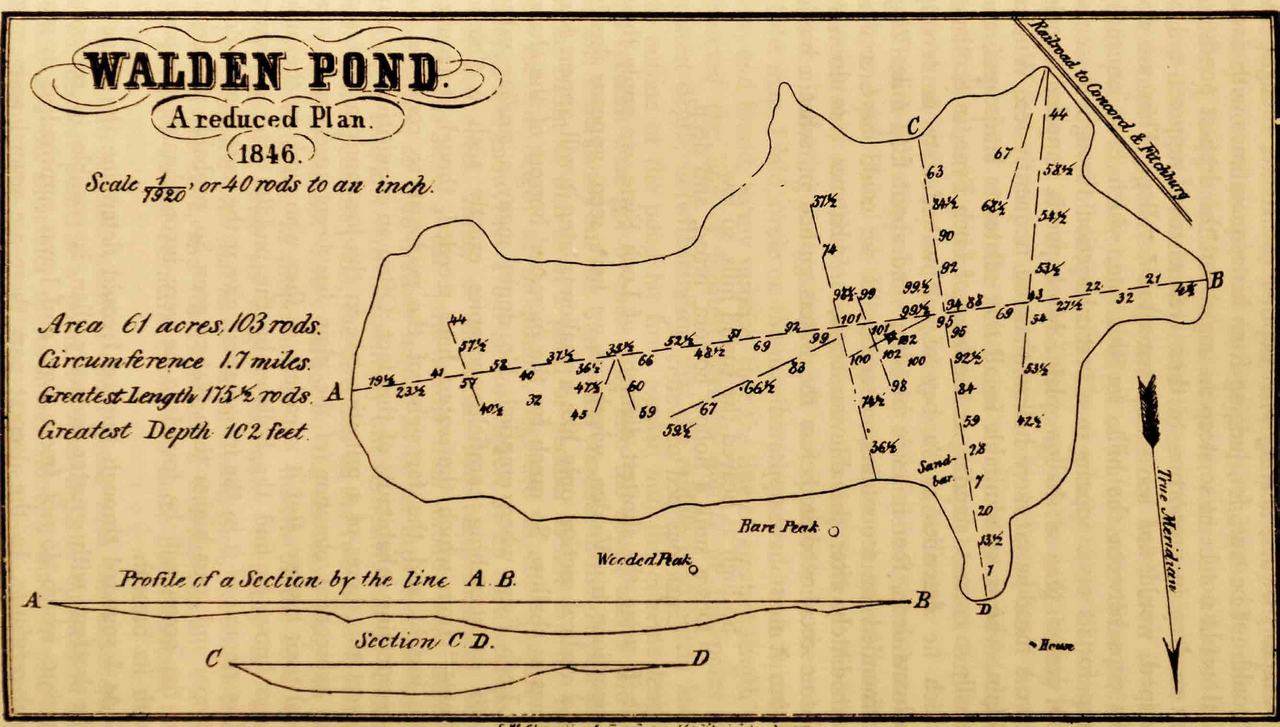 WALDEN POND.
A reduced Plan.
1846.
Scale 1/1920, or 40 rods to an inch.
Railroad to Concord & Fitchburg
Area 61 acres, 103 rods.
Circumference 1.7 miles.
Greatest Length 175½ rods.
Greatest Depth 102 feet.
C
63
84½
90
92
94
95
95
92½
84
59
28
7
20
13½
1
D
44
67
58½
68½
54½
53½
43
54
53½
42½
A
19½
23½
41
44
57½
40½
40
32
37½
36½
47½
45
60
59
66
52½
48½
51
69
92
99
101
37½
74
99
83
66½
67
59½
100
74½
36½
101
99½
99½
102
102
100
98
88
69
27½
22
32
21
4½
B
Sand-
bar.
Bare Peak
Wooded Peak
House
True Meridian
Profile of a Section by the line A. B.
A
B
Section C. D.
C
D